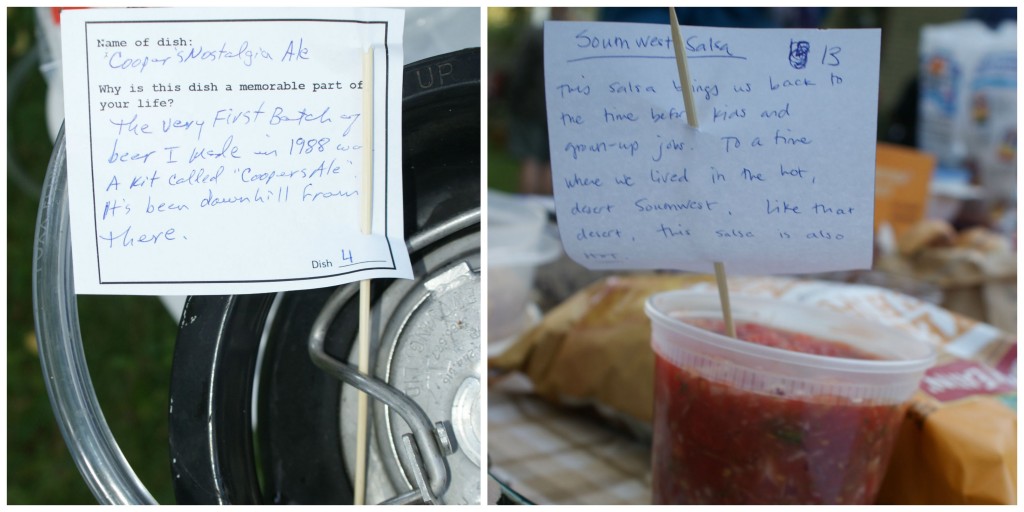 Name of dish:
"Cooper's Nostalgia Ale
Why is this dish a memorable part of
your life?
The very First Batch of
beer I made in 1988 was
A kit called "Coopers Ale".
It's been downhill From
there.
Dish 4
UP
Southwest Salsa
13
This salsa brings us back to
the time before kids and
grown-up jobs. To a time
where we lived in the hot,
desert Southwest. Like that
desert, this salsa is also
hot.